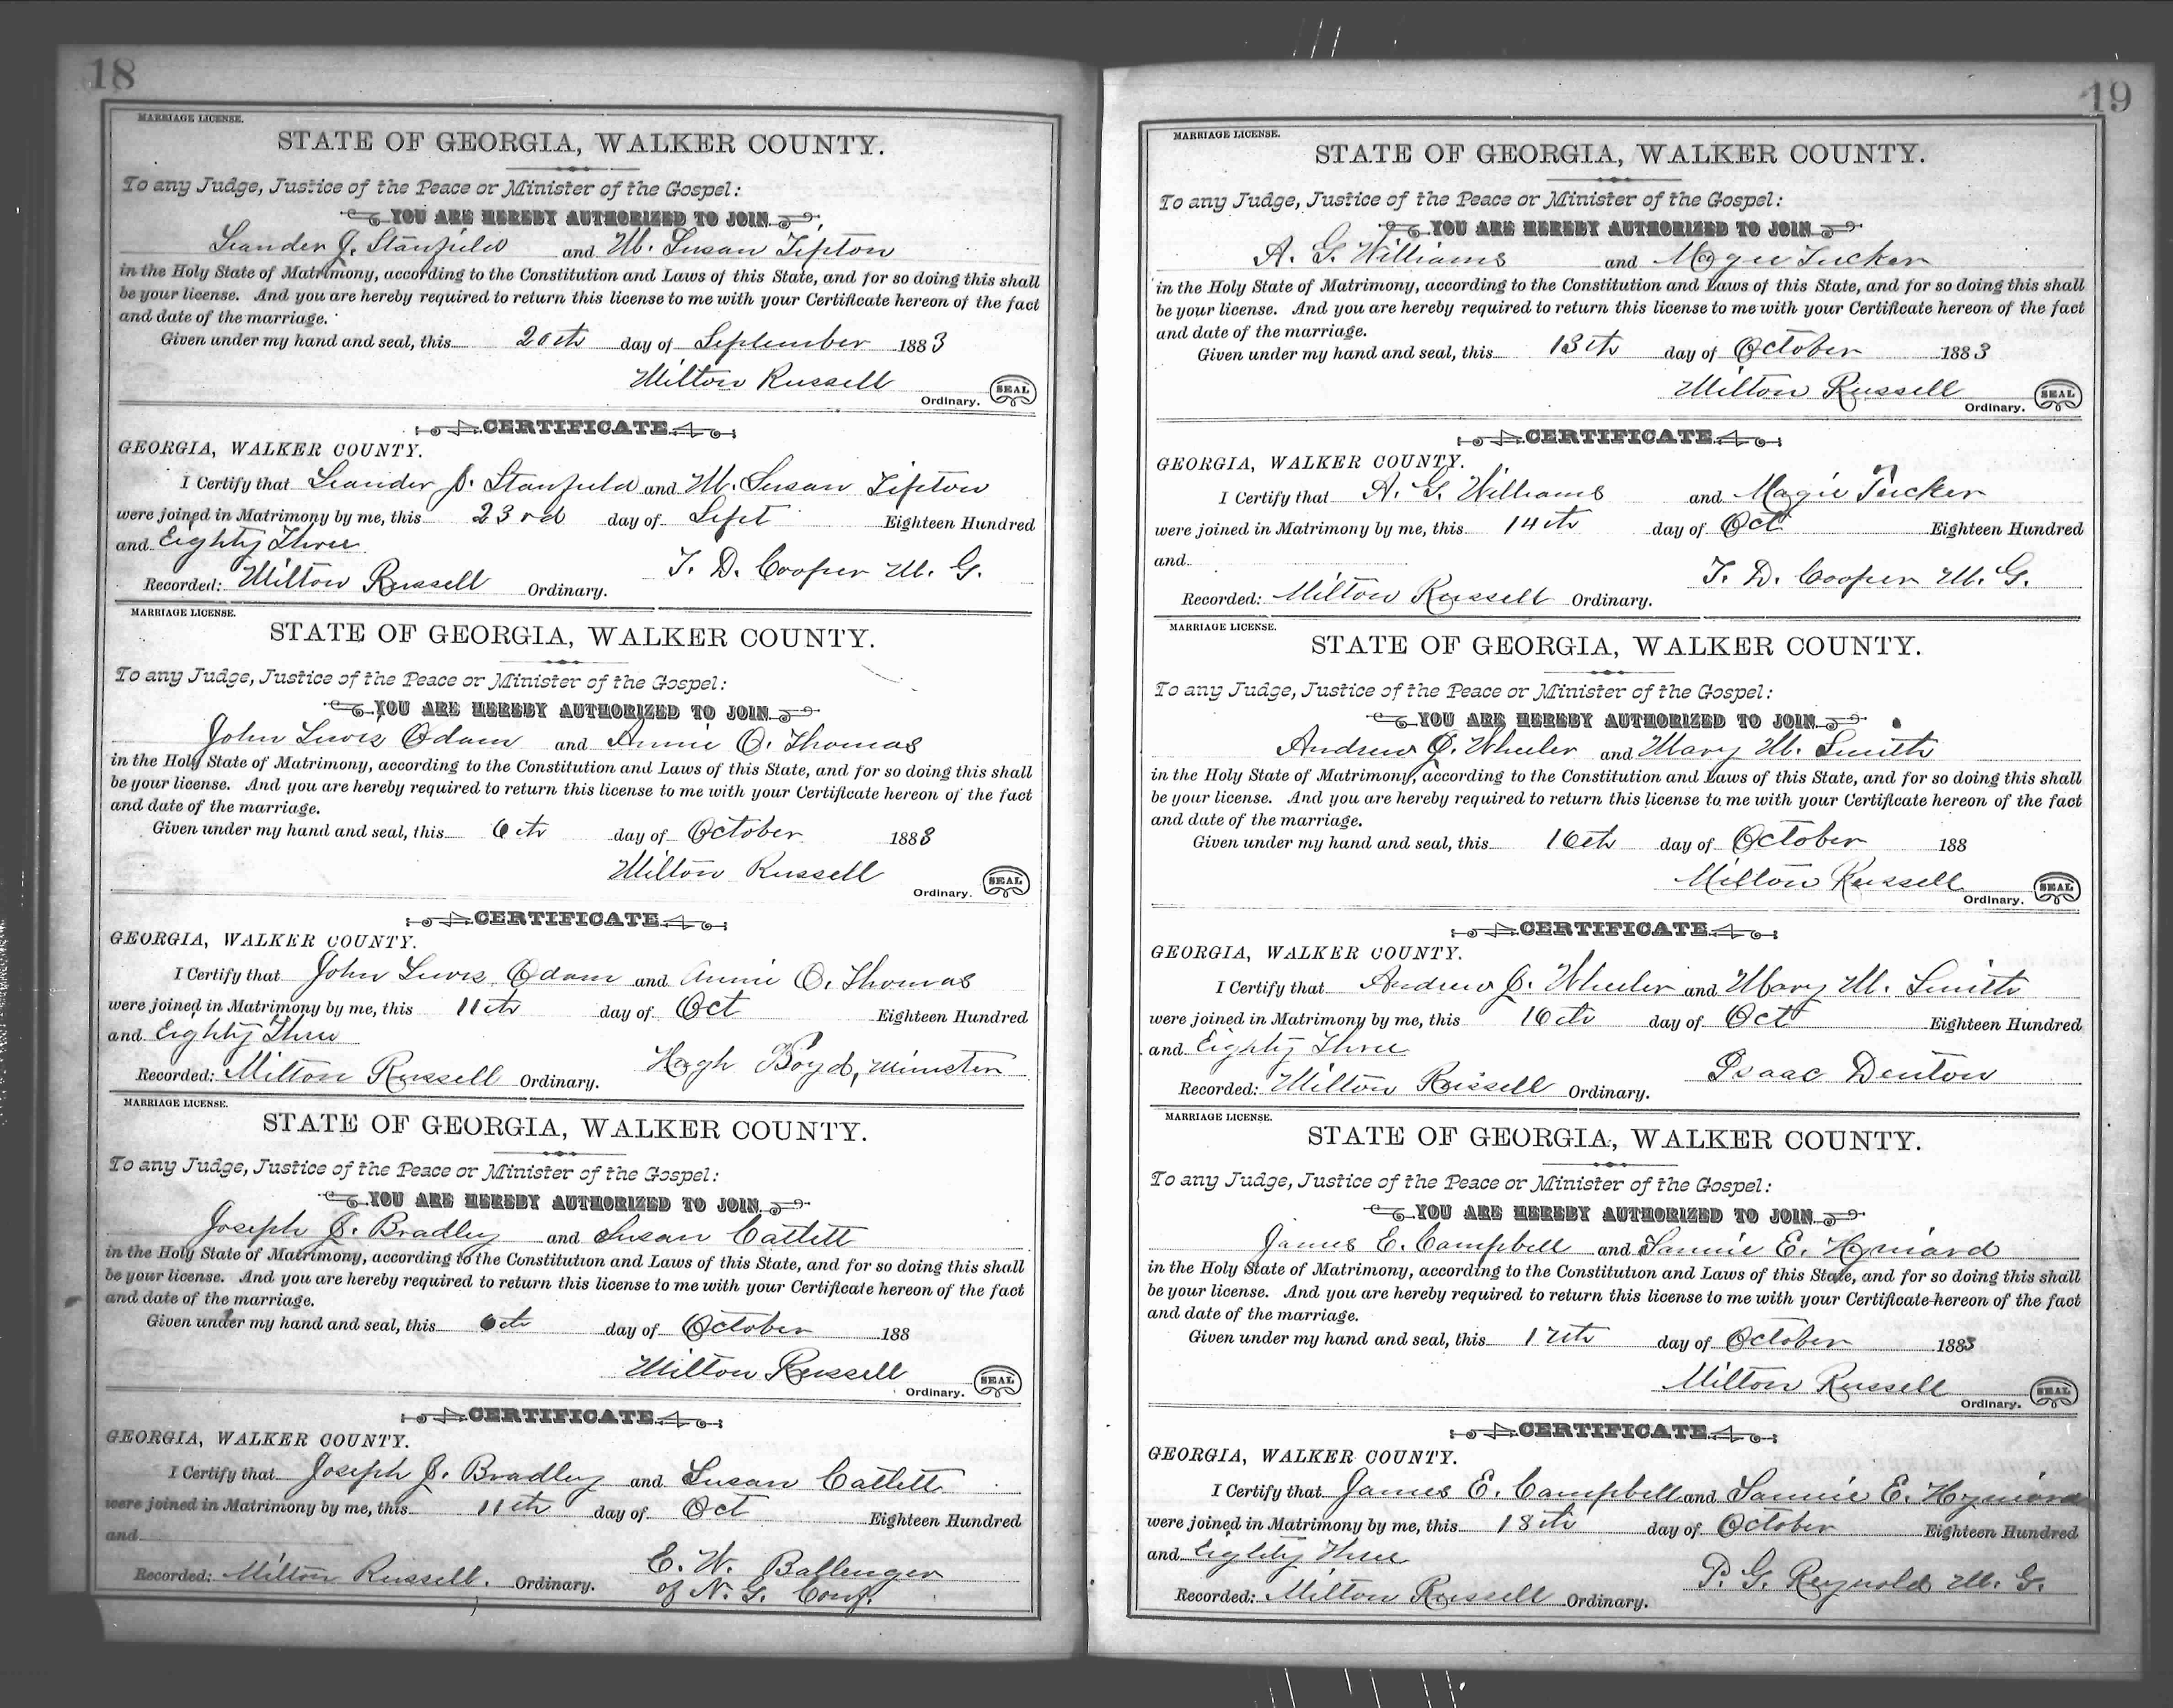 18
MARRIAGE LICENSE.
STATE OF GEORGIA, WALKER COUNTY.
To any Judge, Justice of the Peace or Minister of the Gospel:
YOU ARE HEREBY AUTHORIZED TO JOIN
Leander J. Stanfield and M. Susan Tipton
in the Holy State of Matrimony, according to the Constitution and Laws of this State, and for so doing this shall
be your license. And you are hereby required to return this license to me with your Certificate hereon of the fact
and date of the marriage.
Given under my hand and seal, this 20th day of September 1883
Milton Russell
Ordinary. SEAL
CERTIFICATE
GEORGIA, WALKER COUNTY.
I Certify that Leander J. Stanfield and M. Susan Tipton
were joined in Matrimony by me, this 23rd day of Sept Eighteen Hundred
and Eighty Three
T. D. Cooper M. G.
Recorded: Milton Russell Ordinary.
MARRIAGE LICENSE.
STATE OF GEORGIA, WALKER COUNTY.
To any Judge, Justice of the Peace or Minister of the Gospel:
YOU ARE HEREBY AUTHORIZED TO JOIN
John Lewis Odam and Annie O. Thomas
in the Holy State of Matrimony, according to the Constitution and Laws of this State, and for so doing this shall
be your license. And you are hereby required to return this license to me with your Certificate hereon of the fact
and date of the marriage.
Given under my hand and seal, this 6th day of October 1883
Milton Russell
Ordinary. SEAL
CERTIFICATE
GEORGIA, WALKER COUNTY.
I Certify that John Lewis Odam and Annie O. Thomas
were joined in Matrimony by me, this 11th day of Oct Eighteen Hundred
and Eighty Three
Hugh Boyd, Minister
Recorded: Milton Russell Ordinary.
MARRIAGE LICENSE.
STATE OF GEORGIA, WALKER COUNTY.
To any Judge, Justice of the Peace or Minister of the Gospel:
YOU ARE HEREBY AUTHORIZED TO JOIN
Joseph J. Bradley and Susan Catlett
in the Holy State of Matrimony, according to the Constitution and Laws of this State, and for so doing this shall
be your license. And you are hereby required to return this license to me with your Certificate hereon of the fact
and date of the marriage.
Given under my hand and seal, this 6th day of October 188
Milton Russell
Ordinary. SEAL
CERTIFICATE
GEORGIA, WALKER COUNTY.
I Certify that Joseph J. Bradley and Susan Catlett
were joined in Matrimony by me, this 11th day of Oct Eighteen Hundred
and
E. W. Ballenger
Recorded: Milton Russell. Ordinary.
of N. G. Conf.
19
MARRIAGE LICENSE.
STATE OF GEORGIA, WALKER COUNTY.
To any Judge, Justice of the Peace or Minister of the Gospel:
YOU ARE HEREBY AUTHORIZED TO JOIN
A. G. Williams and Magie Tucker
in the Holy State of Matrimony, according to the Constitution and Laws of this State, and for so doing this shall
be your license. And you are hereby required to return this license to me with your Certificate hereon of the fact
and date of the marriage.
Given under my hand and seal, this 13th day of October 1883
Milton Russell
Ordinary. SEAL
CERTIFICATE
GEORGIA, WALKER COUNTY.
I Certify that A. G. Williams and Magie Tucker
were joined in Matrimony by me, this 14th day of Oct Eighteen Hundred
and
T. D. Cooper M. G.
Recorded: Milton Russell Ordinary.
MARRIAGE LICENSE.
STATE OF GEORGIA, WALKER COUNTY.
To any Judge, Justice of the Peace or Minister of the Gospel:
YOU ARE HEREBY AUTHORIZED TO JOIN
Andrew J. Wheeler and Mary M. Smith
in the Holy State of Matrimony, according to the Constitution and Laws of this State, and for so doing this shall
be your license. And you are hereby required to return this license to me with your Certificate hereon of the fact
and date of the marriage.
Given under my hand and seal, this 16th day of October 188
Milton Russell
Ordinary. SEAL
CERTIFICATE
GEORGIA, WALKER COUNTY.
I Certify that Andrew J. Wheeler and Mary M. Smith
were joined in Matrimony by me, this 16th day of Oct Eighteen Hundred
and Eighty Three
Isaac Denton
Recorded: Milton Russell Ordinary.
MARRIAGE LICENSE.
STATE OF GEORGIA, WALKER COUNTY.
To any Judge, Justice of the Peace or Minister of the Gospel:
YOU ARE HEREBY AUTHORIZED TO JOIN
James E. Campbell and E.
in the Holy State of Matrimony, according to the Constitution and Laws of this State, and for so doing this shall
be your license. And you are hereby required to return this license to me with your Certificate hereon of the fact
and date of the marriage.
Given under my hand and seal, this 17th day of October 1883
Milton Russell
Ordinary. SEAL
CERTIFICATE
GEORGIA, WALKER COUNTY.
I Certify that James E. Campbell and E.
were joined in Matrimony by me, this 18th day of October Eighteen Hundred
and Eighty Three
P. G. Reynolds M. G.
Recorded: Milton Russell Ordinary.